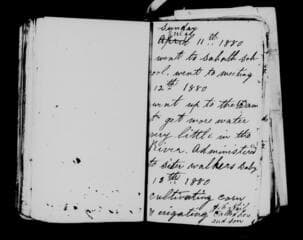 Sunday
July
April 11th 1880
went to sabath sch
ool. went to meeting
12th 1880
went up to the Dam
to get more water
very little in the
River. Administered
to sister walkers baby
13th 1880
cultivating corn
& irigating
and son